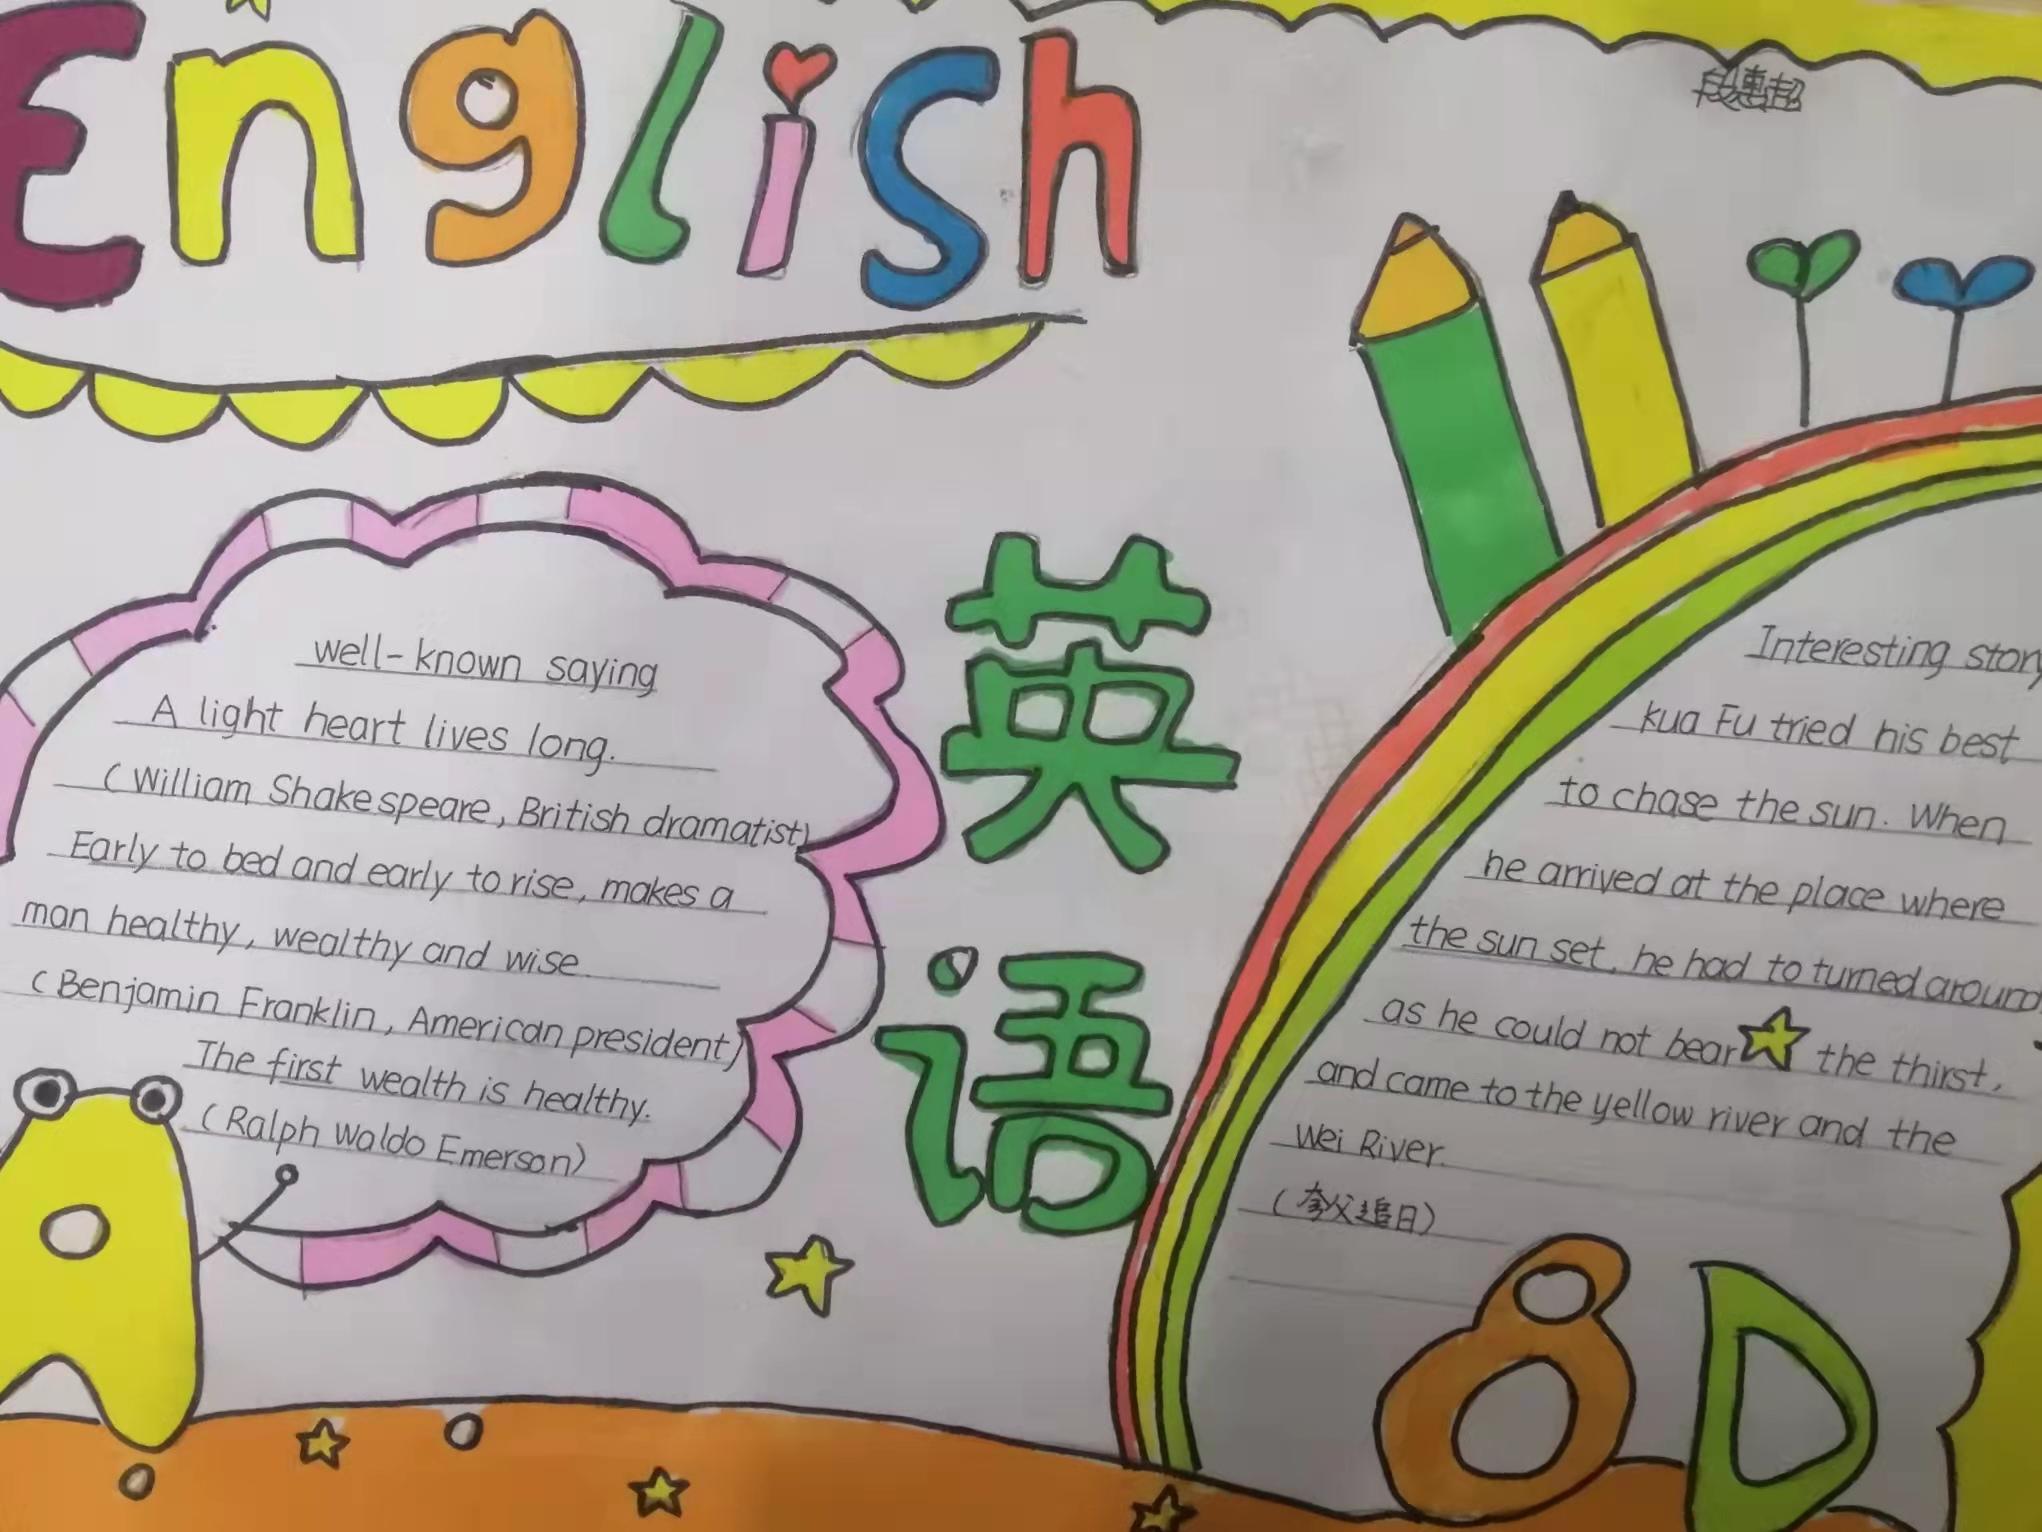 English
段惠超
英
语
well-known saying
A light heart lives long.
(William Shakespeare, British dramatist)
Early to bed and early to rise, makes a
man healthy, wealthy and wise.
(Benjamin Franklin, American president)
The first wealth is healthy.
(Ralph Waldo Emerson)
Interesting story
kua Fu tried his best
to chase the sun. When
he arrived at the place where
the sun set, he had to turned around
as he could not bear the thirst,
and came to the yellow river and the
Wei River.
(夸父追日)
A
8 D